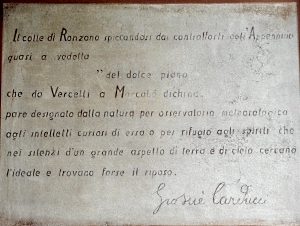 Il colle di Ronzano spiccandosi dai contrafforti dell'Appennino
quasi a vedetta
"del dolce piano
che da Vercelli a Marcabò dichina„
pare designato dalla natura per osservatorio meteorologico
agli intelletti curiosi di essa o per rifugio agli spiriti che
nei silenzi d'un grande aspetto di terra e di cielo cercano
l'ideale e trovano forse il riposo.
Giosuè Carducci